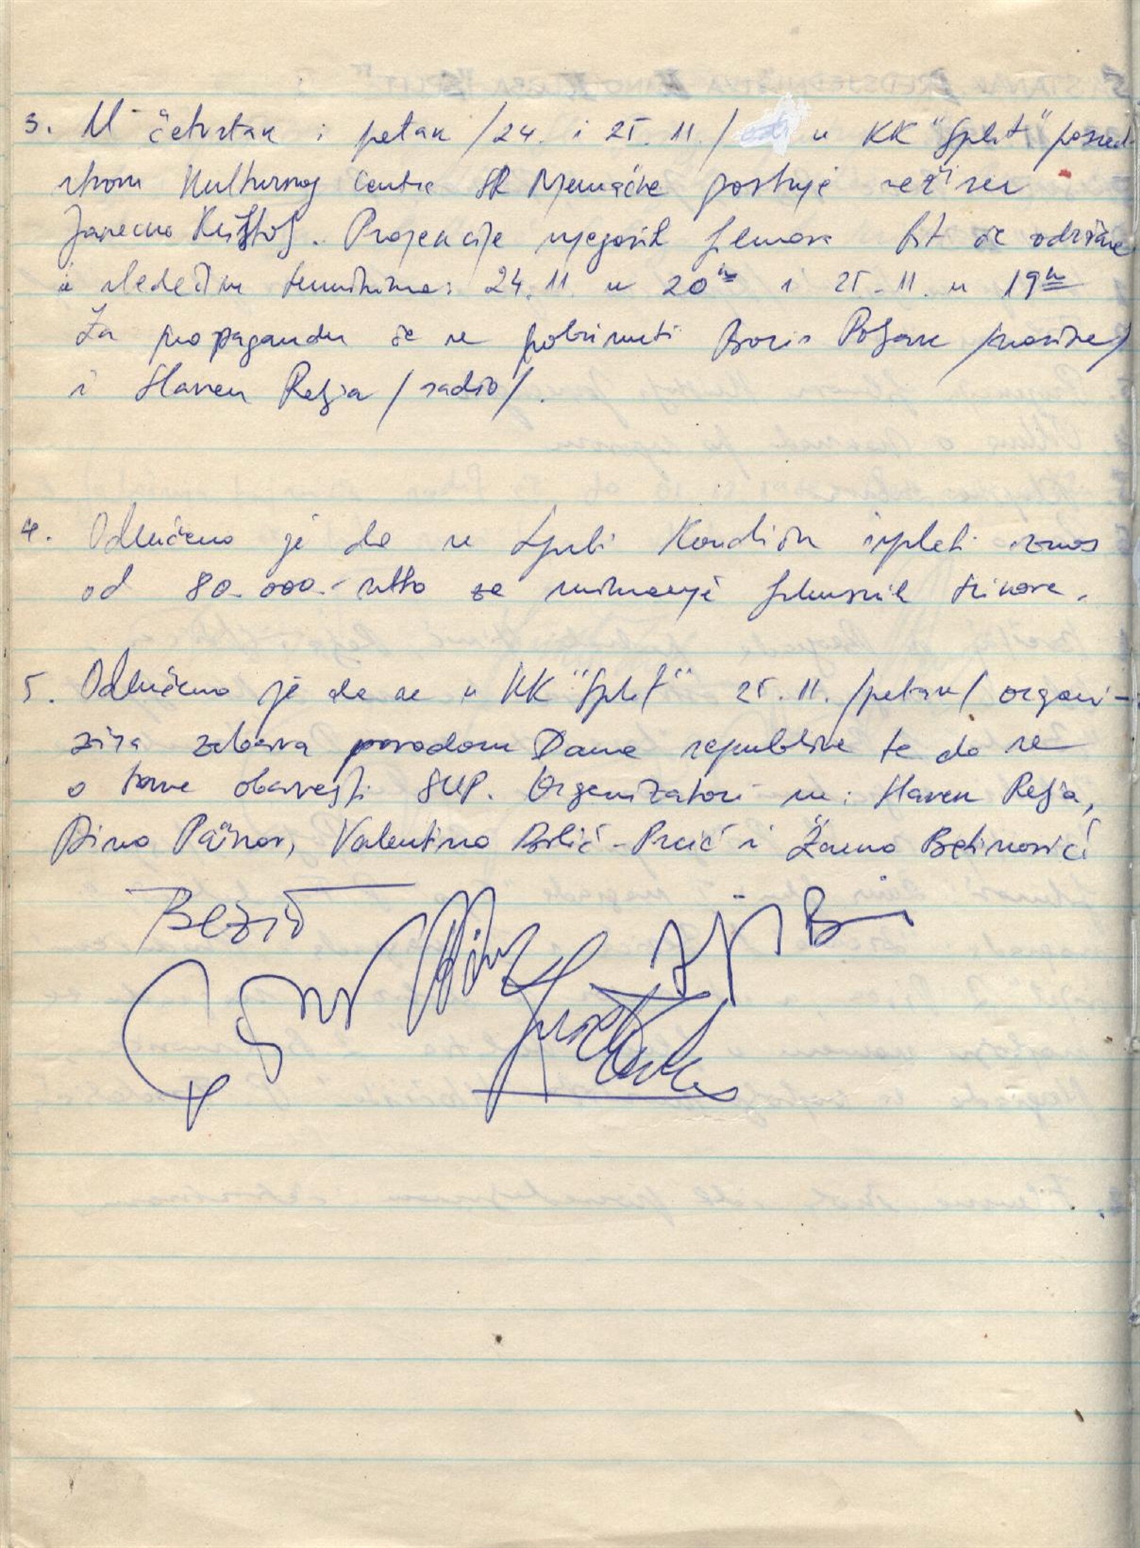 3. U četvrtak i petak /24. i 25. 11./ u KK "Split" posred-
stvom Kulturnog centra SR Njemačke gostuje režiser
Janetzko Krištof. Projekcije njegovih filmova bit će održane
u sledećim terminima: 24.11. u 20 h i 25.11. u 19 h
Za propagandu će se pobrinuti Boris Poljak /novine/
i Slaven Relja /radio/.
4. Odlučeno je da se Ljubi Kondiću isplati iznos
od 80.000.- netto za snimanje filmskih trikova.
5. Odlučeno je da se u KK "Split" 25.11. /petak/ organi-
zira zabava povodom Dana republike te da se
o tome obavesti SUP. Organizatori su: Slaven Relja,
Dino Valentino Bilić-Prcić i Žarko Batinović
Bezić